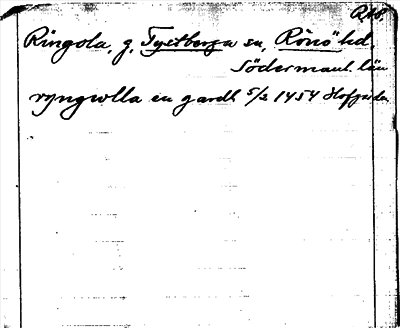 Ringola, g, Tystberga sn, Rönö hd.
Södermanl. län
ryngwlla en gardh 5/2 1454